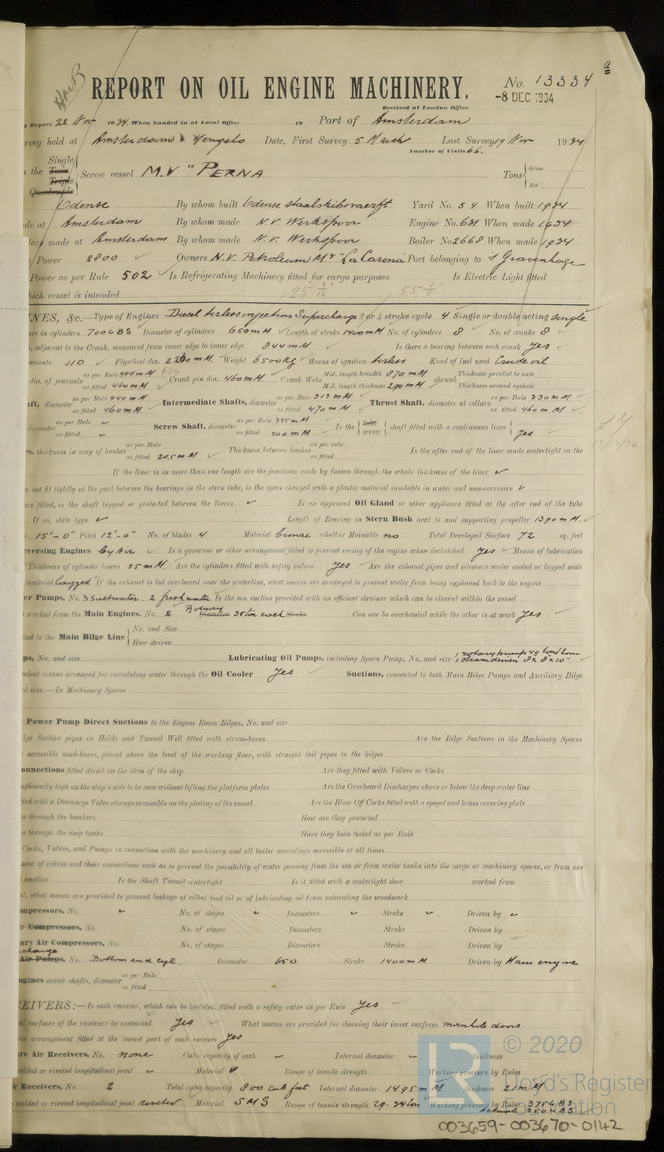 REPORT ON OIL ENGINE MACHINERY.
No. 13334
Received at London Office
-8 DEC 1934
22 Nov 1934 When handed in at Local Office 19 Port of Amsterdam
held at Amsterdam & Hengelo Date, First Survey 5 March Last Survey 19 Nov 1934
Number of Visits 66.
Single
Triple
Quadruple
Screw vessel M.V "PERNA
Tons Gross
Net
Odense By whom built Odense Staalskibsvaerft Yard No. 54 When built 1934
made at Amsterdam By whom made N.V. Werkspoor Engine No. 681 When made 1934
made at Amsterdam By whom made N.V. Werkspoor Boiler No 2668 When made 1934
Power 2800 Owners N.V. Petroleum My "La Corona" Port belonging to 's Gravenhage
Power as per Rule 502 Is Refrigerating Machinery fitted for cargo purposes Is Electric Light fitted
which vessel is intended
ENGINES, &c.—Type of Engines Diesel airless injection Supercharge 2 or 4 stroke cycle 4 Single or double acting single
in cylinders 700 LBS Diameter of cylinders 650 mM Length of stroke 1400 mM No. of cylinders 8 No. of cranks 8
adjacent to the Crank, measured from inner edge to inner edge 844 mM Is there a bearing between each crank yes
minute 110 Flywheel dia. Weight 6500 kg Means of ignition airless Kind of fuel used Crude oil
dia. of journals as per Rule 444 mM as fitted 460 mM Crank pin dia. 460 mM Crank Webs Mid. length breadth 870 mM Mid. length thickness 290 mM shrunk Thickness parallel to axis Thickness around eyehole
diameter as per Rule 444 mM as fitted 460 mM Intermediate Shafts, diameter as per Rule 313 mM as fitted 470 mM Thrust Shaft, diameter at collars as per Rule 330 mM as fitted 460 mM
diameter as per Rule as fitted Screw Shaft, diameter as per Rule 345 mM as fitted 400 mM Is the screw shaft fitted with a continuous liner yes
thickness in way of bushes as per Rule as fitted 20,5 mM Thickness between bushes as per rule as fitted Is the after end of the liner made watertight in the
If the liner is in more than one length are the junctions made by fusion through the whole thickness of the liner
not fit tightly at the part between the bearings in the stern tube, is the space charged with a plastic material insoluble in water and non-corrosive
are fitted, is the shaft lapped or protected between the liners Is an approved Oil Gland or other appliance fitted at the after end of the tube
If so, state type Length of Bearing in Stern Bush next to and supporting propeller 1890 mM.
15'-0" Pitch 12'-0" No. of blades 4 Material bronze whether Moveable no Total Developed Surface 72 sq. feet
Reversing Engines by Air Is a governor or other arrangement fitted to prevent racing of the engine when declutched yes Means of lubrication
Thickness of cylinder liners 55 mM Are the cylinders fitted with safety valves yes Are the exhaust pipes and silencers water cooled or lagged with
material lagged If the exhaust is led overboard near the waterline, what means are arranged to prevent water from being syphoned back to the engine
Pumps, No. 3 saltwater 2 freshwater Is the sea suction provided with an efficient strainer which can be cleared within the vessel
worked from the Main Engines, No. 2 Rotary each Stroke Can one be overhauled while the other is at work yes
to the Main Bilge Line No. and Size
How driven
No. and size Lubricating Oil Pumps, including Spare Pump, No. and size 1 steam driven 8 x 8 x 10"
means arranged for circulating water through the Oil Cooler yes Suctions, connected to both Main Bilge Pumps and Auxiliary Bilge
size:—In Machinery Spaces
Power Pump Direct Suctions to the Engine Room Bilges, No. and size
Suction pipes in Holds and Tunnel Well fitted with strum-boxes Are the Bilge Suctions in the Machinery Spaces
accessible mud-boxes, placed above the level of the working floor, with straight tail pipes to the bilges
Connections fitted direct on the skin of the ship Are they fitted with Valves or Cocks
sufficiently high on the ship's side to be seen without lifting the platform plates Are the Overboard Discharges above or below the deep water line
fitted with a Discharge Valve always accessible on the plating of the vessel Are the Blow Off Cocks fitted with a spigot and brass covering plate
through the bunkers How are they protected
through the deep tanks Have they been tested as per Rule
Cocks, Valves, and Pumps in connection with the machinery and all boiler mountings accessible at all times
of valves and their connections such as to prevent the possibility of water passing from the sea or from water tanks into the cargo or machinery spaces, or from one
another Is the Shaft Tunnel watertight Is it fitted with a watertight door worked from
what means are provided to prevent leakage of either fuel oil or of lubricating oil from saturating the woodwork
Compressors, No. No. of stages Diameters Stroke Driven by
Compressors, No. No. of stages Diameters Stroke Driven by
Air Compressors, No. No. of stages Diameters Stroke Driven by
Air Pumps, No. Bottom end cyl. Diameter 650 Stroke 1400 mM Driven by Main engine
Engines crank shafts, diameter as per Rule as fitted
RECEIVERS:—Is each receiver, which can be isolated, fitted with a safety valve as per Rule yes
surfaces of the receivers be examined yes What means are provided for cleaning their inner surfaces manhole doors
arrangement fitted at the lowest part of each receiver yes
Air Receivers, No. none Cubic capacity of each Internal diameter thickness
welded or riveted longitudinal joint Material Range of tensile strength Working pressure by Rules
Receivers, No. 2 Total cubic capacity 800 cub feet Internal diameter 1495 mM thickness 21 mM
welded or riveted longitudinal joint riveted Material S M S Range of tensile strength Working pressure by Rules
LR
© 2020
Lloyd's Register
Foundation
003659-003670-0142